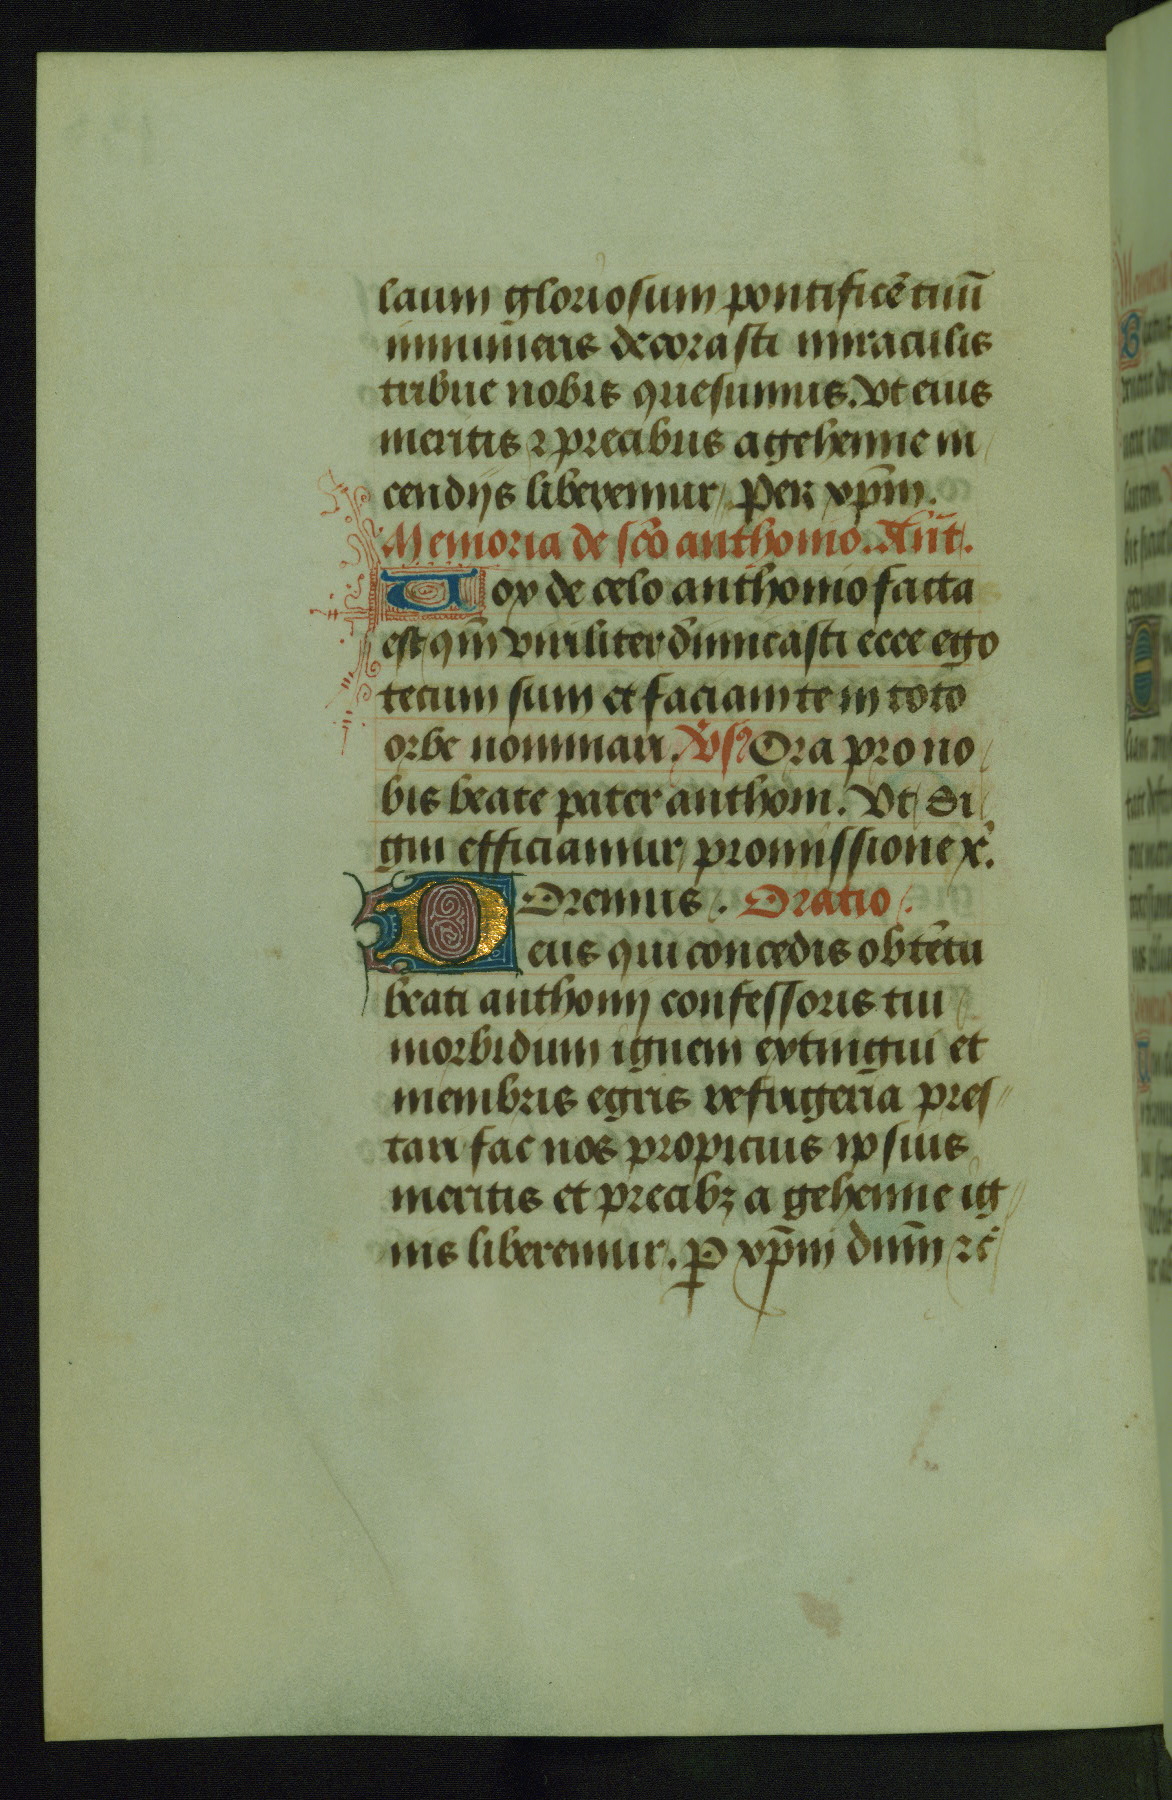 laum gloriosum pontificē tuū
innumeris decorasti miraculis
tribue nobis quesumus. Vt eius
meritis ⁊ precibus a gehenne in
cendijs liberemur Per xp̄m.
Memoria de sc̄o anthonio. Ant̄.
Vox de celo anthonio facta
est qm̄ viriliter dimicasti ecce ego
tecum sum et faciam te in toto
orbe nominari. Vs̉ Ora pro no
bis beate pater anthoni. Vt di
gni efficiamur promissione x̉.
Oremus. Oratio.
Deus qui concedis obtētu
beati anthonij confessoris tui
morbidum ignem extingui et
membris egris refrigeria pres
tari fac nos propicius ipsius
meritis et precibꝫ a gehenne ig
nis liberemur. P xp̄m dnm̄ ⁊c̉